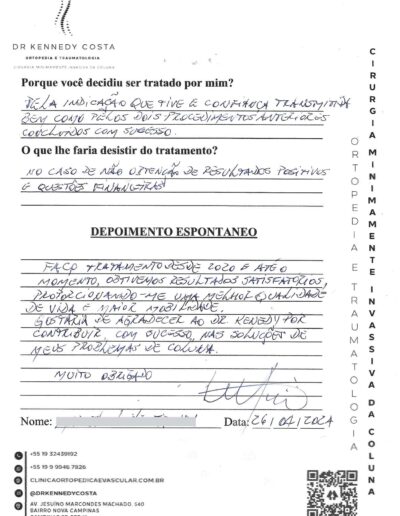 DR KENNEDY COSTA
ORTOPEDIA E TRAUMATOLOGIA
CIRURGIA MINIMAMENTE INVASIVA DA COLUNA
Porque você decidiu ser tratado por mim?
PELA INDICAÇÃO QUE TIVE E CONFIANÇA TRANSMITIDA
BEM COMO PELOS DOIS PROCEDIMENTOS ANTERIORES
CONCLUIDOS COM SUCESSO.
O que lhe faria desistir do tratamento?
NO CASO DE NÃO OBTENÇÃO DE RESULTADOS POSITIVOS
E QUESTÕES FINANCEIRAS
DEPOIMENTO ESPONTANEO
FAÇO TRATAMENTO DESDE 2020 E ATÉ O
MOMENTO, OBTIVEMOS RESULTADOS SATISFATÓRIOS,
PROPORCIONANDO-ME UMA MELHOR QUALIDADE
DE VIDA E MAIOR MOBILIDADE.
GOSTARIA DE AGRADECER AO DR KENEDY POR
CONTRIBUIR COM SUCESSO, NAS SOLUÇÕES DE
MEUS PROBLEMAS DE COLUNA.
MUITO OBRIGADO
Nome: Data: 26/04/2024
+55 19 32439192
+55 19 9 9946 7926
CLINICAORTOPEDICAEVASCULAR.COM.BR
@DRKENNEDYCOSTA
AV. JESUÍNO MARCONDES MACHADO, 540
BAIRRO NOVA CAMPINAS
ORTOPEDIA E TRAUMATOLOGIA
CIRURGIA MINIMAMENTE INVASSIVA DA COLUNA